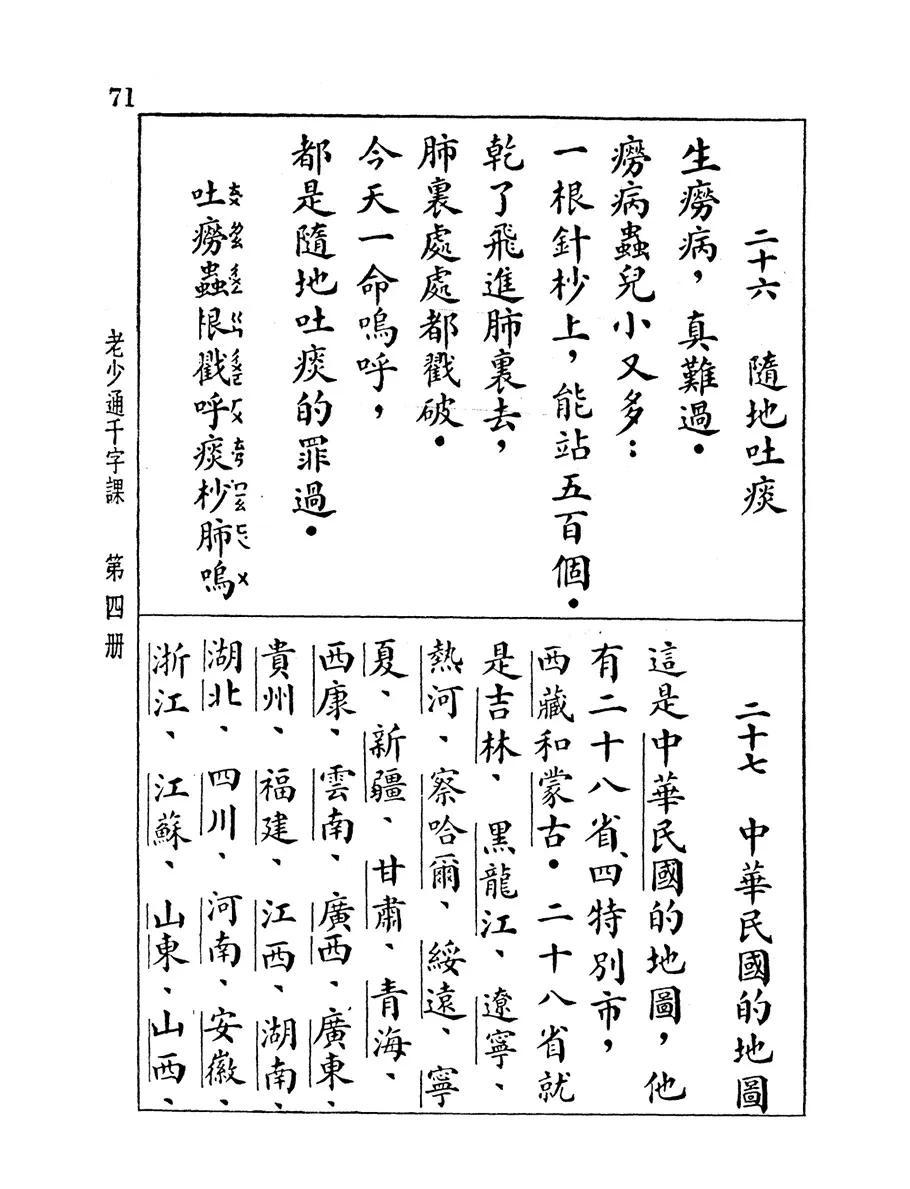 71
二十六　隨地吐痰
生癆病，真難過．
癆病蟲兒小又多：
一根針杪上，能站五百個．
乾了飛進肺裏去，
肺裏處處都戳破．
今天一命嗚呼，
都是隨地吐痰的罪過．
吐癆蟲根戳呼痰杪肺嗚
二十七　中華民國的地圖
這是中華民國的地圖，他
有二十八省、四特別市，
西藏和蒙古．二十八省就
是吉林、黑龍江、遼寧、
熱河、察哈爾、綏遠、寧
夏、新疆、甘肅、青海、
西康、雲南、廣西、廣東、
貴州、福建、江西、湖南、
湖北、四川、河南、安徽、
浙江、江蘇、山東、山西、
老少通千字課　第四册